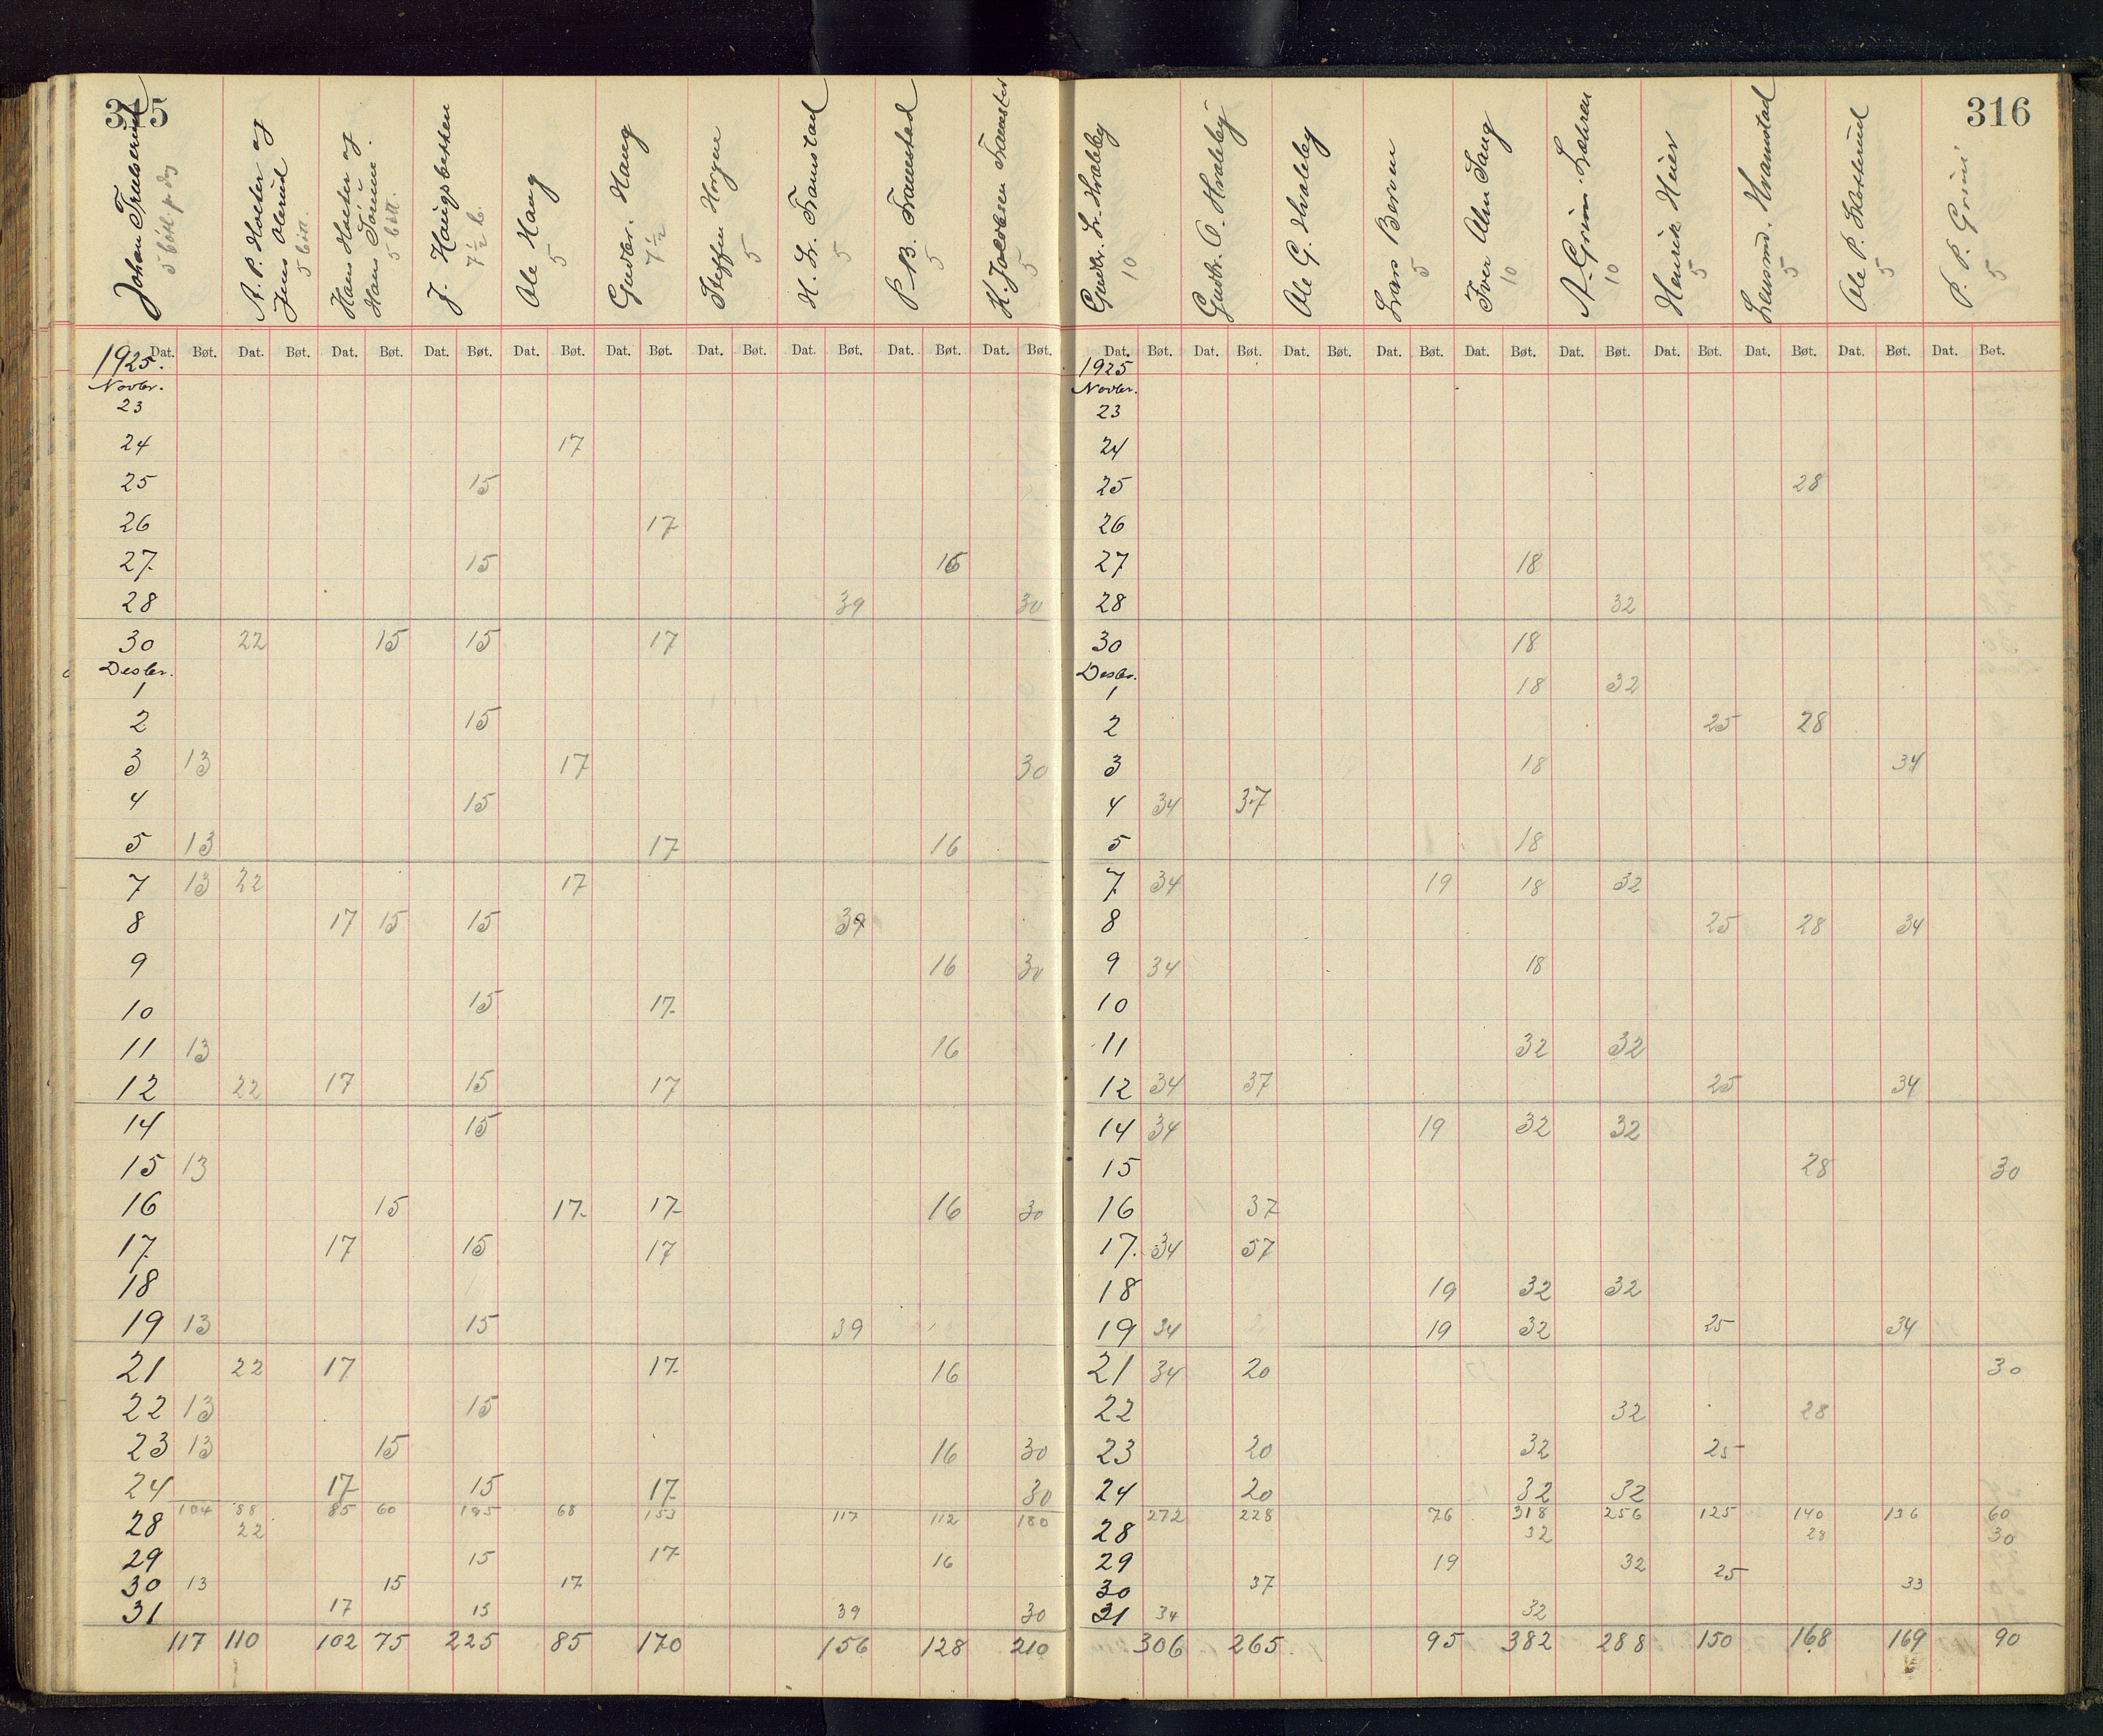 315
Johan Trulserud
5 bött. pr dag
A. P. Holter og
Jens Olerud
5 bött.
Hans Holter og
Hans
5 bött.
J. Haugsbakken
7 1/2 b.
Ole Haug
5
Gudbr. Haug
7 1/2
Steffen Horgen
5
H. Fr. Framstad
5
P. B. Framstad
5
K. Jacobsen Framstad
5
Dat. Bøt. Dat. Bøt. Dat. Bøt. Dat. Bøt. Dat. Bøt. Dat. Bøt. Dat. Bøt. Dat. Bøt. Dat. Bøt. Dat. Bøt.
1925.
Novbr.
23
24 17
25 15
26 17
27 15 16
28 39 30
30 22 15 15 17
Desbr.
1
2 15
3 13 17 30
4 15
5 13 17 16
7 13 22 17
8 17 15 15 39
9 16 30
10 15 17
11 13 16
12 22 17 15 17
14 15
15 13
16 15 17 17 16 30
17 17 15 17
18
19 13 15 39
21 22 17 17 16
22 13 15
23 13 15 16 30
24 17 15 17 30
104 88 85 60 195 68 153 117 112 180
28 22
29 15 17 16
30 13 15 17
31 17 15 39 30
117 110 102 75 225 85 170 156 128 210
316
Gudbr. Hvaleby
10
Gudbr. O. Hvaleby
Ole G. Hvaleby
Lars Berven
5
Iver Alm Haug
10
A. Grini
10
Henrik Heier
5
Hvamstad
5
Ole P.
5
P. P. Grini
5
Dat. Bøt. Dat. Bøt. Dat. Bøt. Dat. Bøt. Dat. Bøt. Dat. Bøt. Dat. Bøt. Dat. Bøt. Dat. Bøt. Dat. Bøt.
1925
Novbr.
23
24
25 28
26
27 18
28 32
30 18
Desbr.
1 18 32
2 25 28
3 18 34
4 34 37
5 18
7 34 19 18 32
8 25 28 34
9 34 18
10
11 32 32
12 34 37 25 34
14 34 19 32 32
15 28 30
16 37
17. 34 57
18 19 32 32
19 34 19 32 25 34
21 34 20 30
22 32 28
23 20 32 25
24 20 32 32
272 228 76 318 256 125 140 136 60
28 32 28 30
29 19 32 25
30 37 33
31 34 32
306 265 95 382 288 150 168 169 90